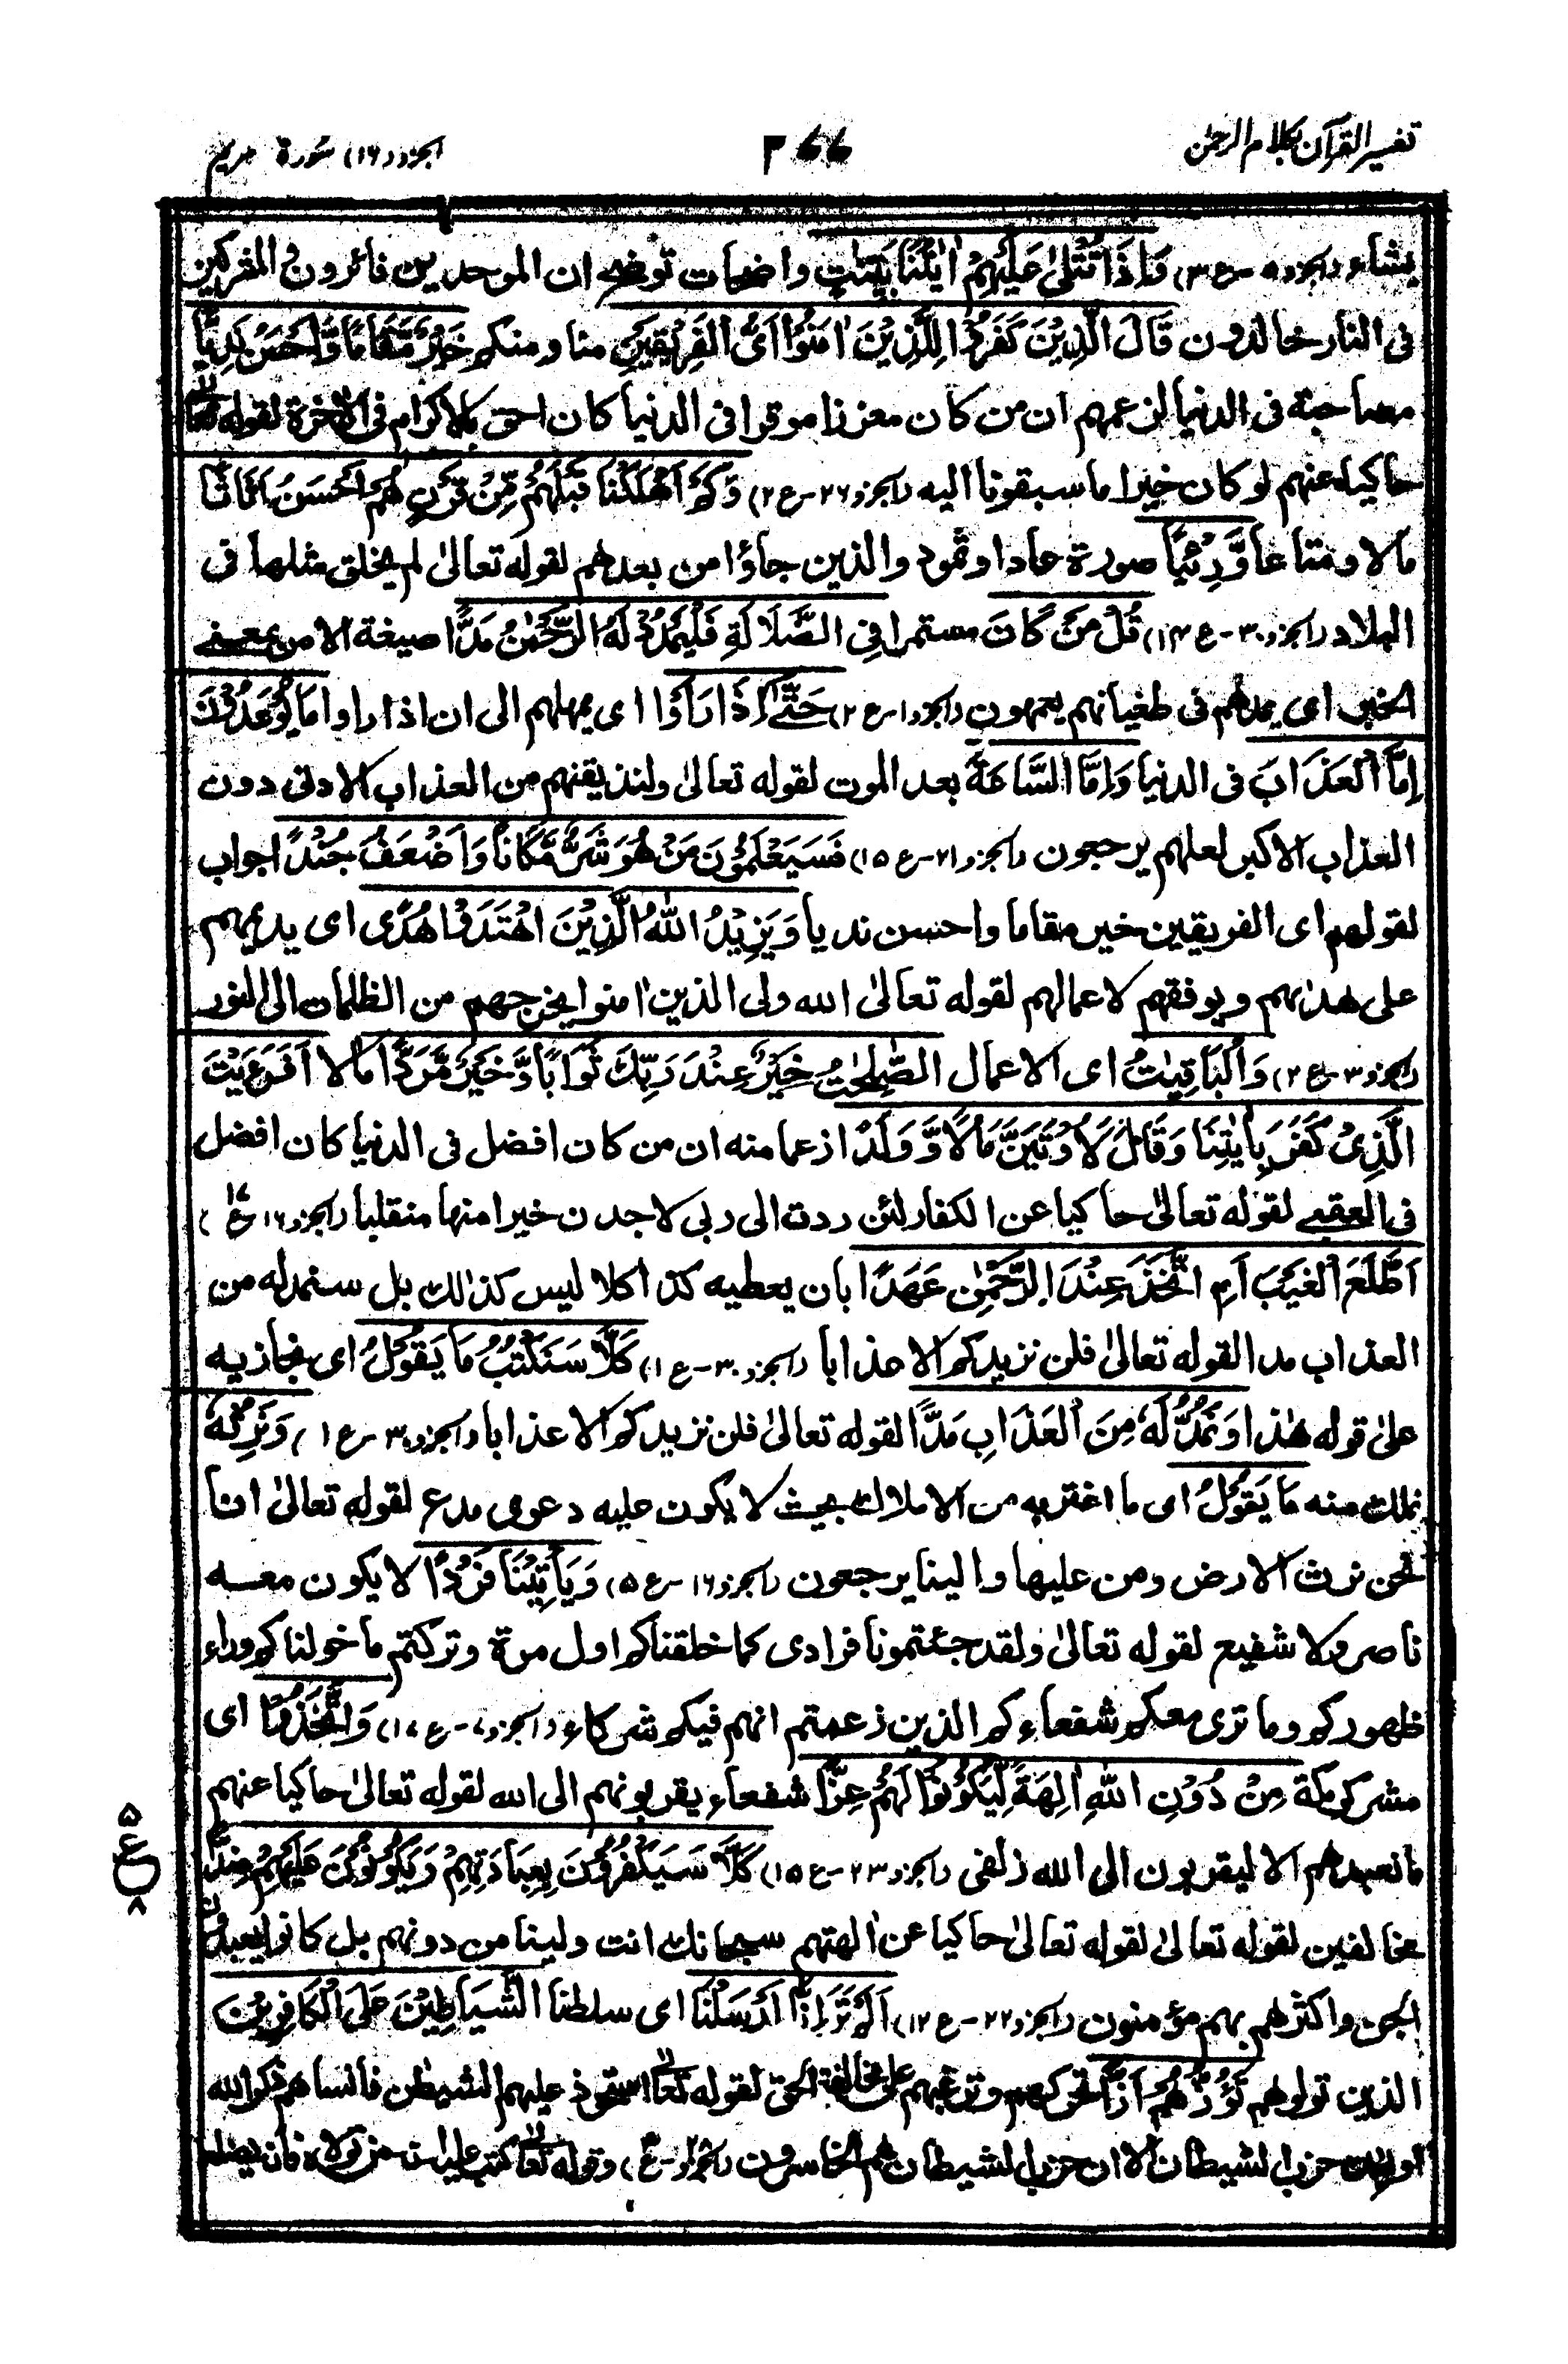 تفسير القرآن بكلام الرحمن
٢٦٦
الجزو (١٦) سورة مريم
يشاء (الجزو ٥-ع ٣) وَاِذَا تُتْلٰى عَلَيْهِمْ اٰيٰتُنَا بَيِّنٰتٍ واضحات توضح ان الموحدين فائزون والمشركين
فى النار خالدون قَالَ الَّذِيْنَ كَفَرُوْا لِلَّذِيْنَ اٰمَنُوْا اَىُّ الْفَرِيْقَيْنِ منا ومنكم خَيْرٌ مَّقَامًا وَّاَحْسَنُ نَدِيًّا
مصاحبة فى الدنيا لزعمهم ان من كان معززا موقرا فى الدنيا كان احق بالاكرام فى الاخرة لقوله تعا
حاكيا عنهم لو كان خيرا ما سبقونا اليه (الجزو ٢٦-ع ٢) وَكَمْ اَهْلَكْنَا قَبْلَهُمْ مِّنْ قَرْنٍ هُمْ اَحْسَنُ اَثَاثًا
مالا ومتاعا وَّرِئْيًا صورة عادا وثمود والذين جاؤا من بعدهم لقوله تعالىٰ لم يخلق مثلها فى
البلاد (الجزو ٣٠-ع ١٤) قُلْ مَنْ كَانَ مستمرا فِى الضَّلٰلَةِ فَلْيَمْدُدْ لَهُ الرَّحْمٰنُ مَدًّا صيغة الامر بمعنے
الخبر اى يمدهم فى طغيانهم يعمهون (الجزو ١-ع ٢) حَتّٰى اِذَا رَاَوْا اى يمهلهم الى ان اذا راوا مَا يُوْعَدُوْنَ
اِمَّا الْعَذَابَ فى الدنيا وَاِمَّا السَّاعَةَ بعد الموت لقوله تعالىٰ ولنذيقنهم من العذاب الادنى دون
العذاب الاكبر لعلهم يرجعون (الجزو ٢١-ع ١٥) فَسَيَعْلَمُوْنَ مَنْ هُوَ شَرٌّ مَّكَانًا وَاَضْعَفُ جُنْدًا جواب
لقولهم اى الفريقين خير مقاما واحسن نديا وَيَزِيْدُ اللهُ الَّذِيْنَ اهْتَدَوْا هُدًى اى يديمهم
على هداهم ويوفقهم لاعمالهم لقوله تعالىٰ الله ولى الذين اٰمنوا يخرجهم من الظلمات الى النور
(الجزو ٣-ع ٢) وَالْبَاقِيٰتُ اى الاعمال الصّٰلِحٰتُ خَيْرٌ عِنْدَ رَبِّكَ ثَوَابًا وَّخَيْرٌ مَّرَدًّا مالا اَفَرَءَيْتَ
الَّذِىْ كَفَرَ بِاٰيٰتِنَا وَقَالَ لَاُوْتَيَنَّ مَالًا وَّوَلَدًا زعما منه ان من كان افضل فى الدنيا كان افضل
فى العقبے لقوله تعالىٰ حاكيا عن الكفار لئن رددت الى ربى لاجدن خيرا منها منقلبا (الجزو ١٦ ع )
اَطَّلَعَ الْغَيْبَ اَمِ اتَّخَذَ عِنْدَ الرَّحْمٰنِ عَهْدًا بان يعطيه كذا كلا ليس كذالك بل سنمد له من
العذاب مدا لقوله تعالىٰ فلن نزيدكم الا عذابا (الجزو ٣٠-ع ١) كَلَّا سَنَكْتُبُ مَا يَقُوْلُ اى نجازيه
علىٰ قوله هٰذا وَنَمُدُّ لَهٗ مِنَ الْعَذَابِ مَدًّا لقوله تعالىٰ فلن نزيدكم الا عذابا (الجزو ٣٠-ع ١) وَنَرِثُهٗ
نملك منه مَا يَقُوْلُ اى ما اختر به من الاملاك بحيث لا يكون عليه دعوى مدع لقوله تعالىٰ انا
نحن نرث الارض ومن عليها والينا يرجعون (الجزو ١٦-ع ٥) وَيَأْتِيْنَا فَرْدًا لا يكون معه
ناصر ولا شفيع لقوله تعالىٰ ولقد جئتمونا فرادى كما خلقناكم اول مرة وتركتم ما خولناكم وراء
ظهوركم وما نرى معكم شفعاءكم الذين زعمتم انهم فيكم شركاء (الجزو ٧-ع ١٧) وَاتَّخَذُوْا اى
مشركى مكة مِنْ دُوْنِ اللهِ اٰلِهَةً لِّيَكُوْنُوْا لَهُمْ عِزًّا شفعاء يقربونهم الى الله لقوله تعالىٰ حاكيا عنهم
ما نعبدهم الا ليقربون الى الله زلفى (الجزو ٢٣-ع ١٥) كَلَّا سَيَكْفُرُوْنَ بِعِبَادَتِهِمْ وَيَكُوْنُوْنَ عَلَيْهِمْ ضِدًّا
مخالفين لقوله تعالىٰ لقوله تعالىٰ حاكيا عن اٰلهتهم سبحانك انت ولينا من دونهم بل كانوا يعبدون
الجن واكثرهم بهم مؤمنون (الجزو ٢٢-ع ١٢) اَلَمْ تَرَ اَنَّا اَرْسَلْنَا اى سلطنا الشَّيَاطِيْنَ عَلَى الْكَافِرِيْنَ
الذين تولوهم تَؤُزُّهُمْ اَزًّا تحركهم وترغبهم على مخالفة الحق لقوله تعا استحوذ عليهم الشيطٰن فانساهم ذكر الله
اولٰئك حزب الشيطان الا ان حزب الشيطان هم الخاسرون وقوله تعا كتب عليه انه من تولاه فانه يضله
٥
ع
٨